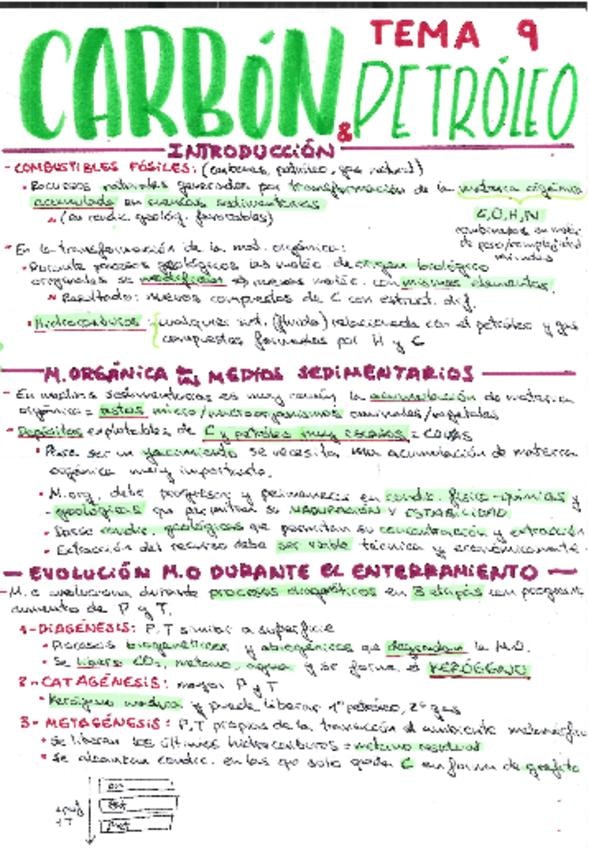 TEMA 9
CARBÓN & PETRÓLEO
INTRODUCCIÓN
- COMBUSTIBLES FÓSILES: (carbones, petróleo, gas natural)
• Recursos naturales generados por transformación de la materia orgánica
acumulada en cuencas sedimentarias
(en condic. geológ. favorables)
C, O, H, N
combinados en moléc.
de peso/complejidad
- En la transformación de la mat. orgánica:
• Durante procesos geológicos las moléc de origen biológico
originales se modifican a nuevas moléc. con mismos elementos.
Resultado: nuevos compuestos de C con estruct. dif.
• Hidrocarburos: cualquier sust. (fluida) relacionada con el petróleo y gas
compuestos formados por H y C
M. ORGÁNICA EN LOS MEDIOS SEDIMENTARIOS
- En medios sedimentarios es muy común la acumulación de materia
orgánica = restos micro/macroorganismos animales/vegetales
- Depósitos explotables de C y petróleo muy escasos =
• Para ser un yacimiento se necesita una acumulación de materia
orgánica muy importante.
• M.org. debe progresar y permanecer en condic. físico-químicas y
- geológicas que permitan su MADURACIÓN Y ESTABILIDAD
• condic. geológicas que permitan su concentración y extracción
• Extracción del recurso debe ser viable técnica y económicamente.
- EVOLUCIÓN M.O DURANTE EL ENTERRAMIENTO -
- M.O evoluciona durante procesos diagenéticos en 3 etapas con
aumento de P y T.
1- DIAGÉNESIS: P, T similar a superficie
• Procesos biogenéticos y abiogénicos que degradan la M.O.
• Se libera CO₂, metano, agua y se forma el KERÓGENO
2- CATAGÉNESIS: mayor P y T
• Kerógeno madura y puede liberar 1º petróleo, 2º gas
3- METAGÉNESIS: P, T propias de la transición al ambiente metamórfico
• Se liberan los últimos hidrocarburos = metano residual
• Se alcanzan condic. en las que solo queda C en forma de grafito
+ prof
+ T